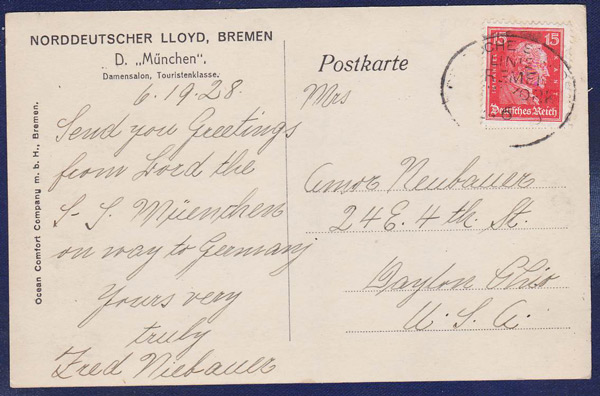 NORDDEUTSCHER LLOYD, BREMEN
D. „München“,
Damensalon, Touristenklasse.
6.19.28.
Send you Greetings
from Bord the
S-S. Müenchen
on way to Germany
Yours very
truly
Fred Niebauer
Ocean Comfort Company m. b. H., Bremen.
Postkarte
Mrs
Amor Neubauer
24 E. 4 th. St.
Dayton Ohio
U. S. A.
15 15
Deutsches Reich
BREMEN
YORK